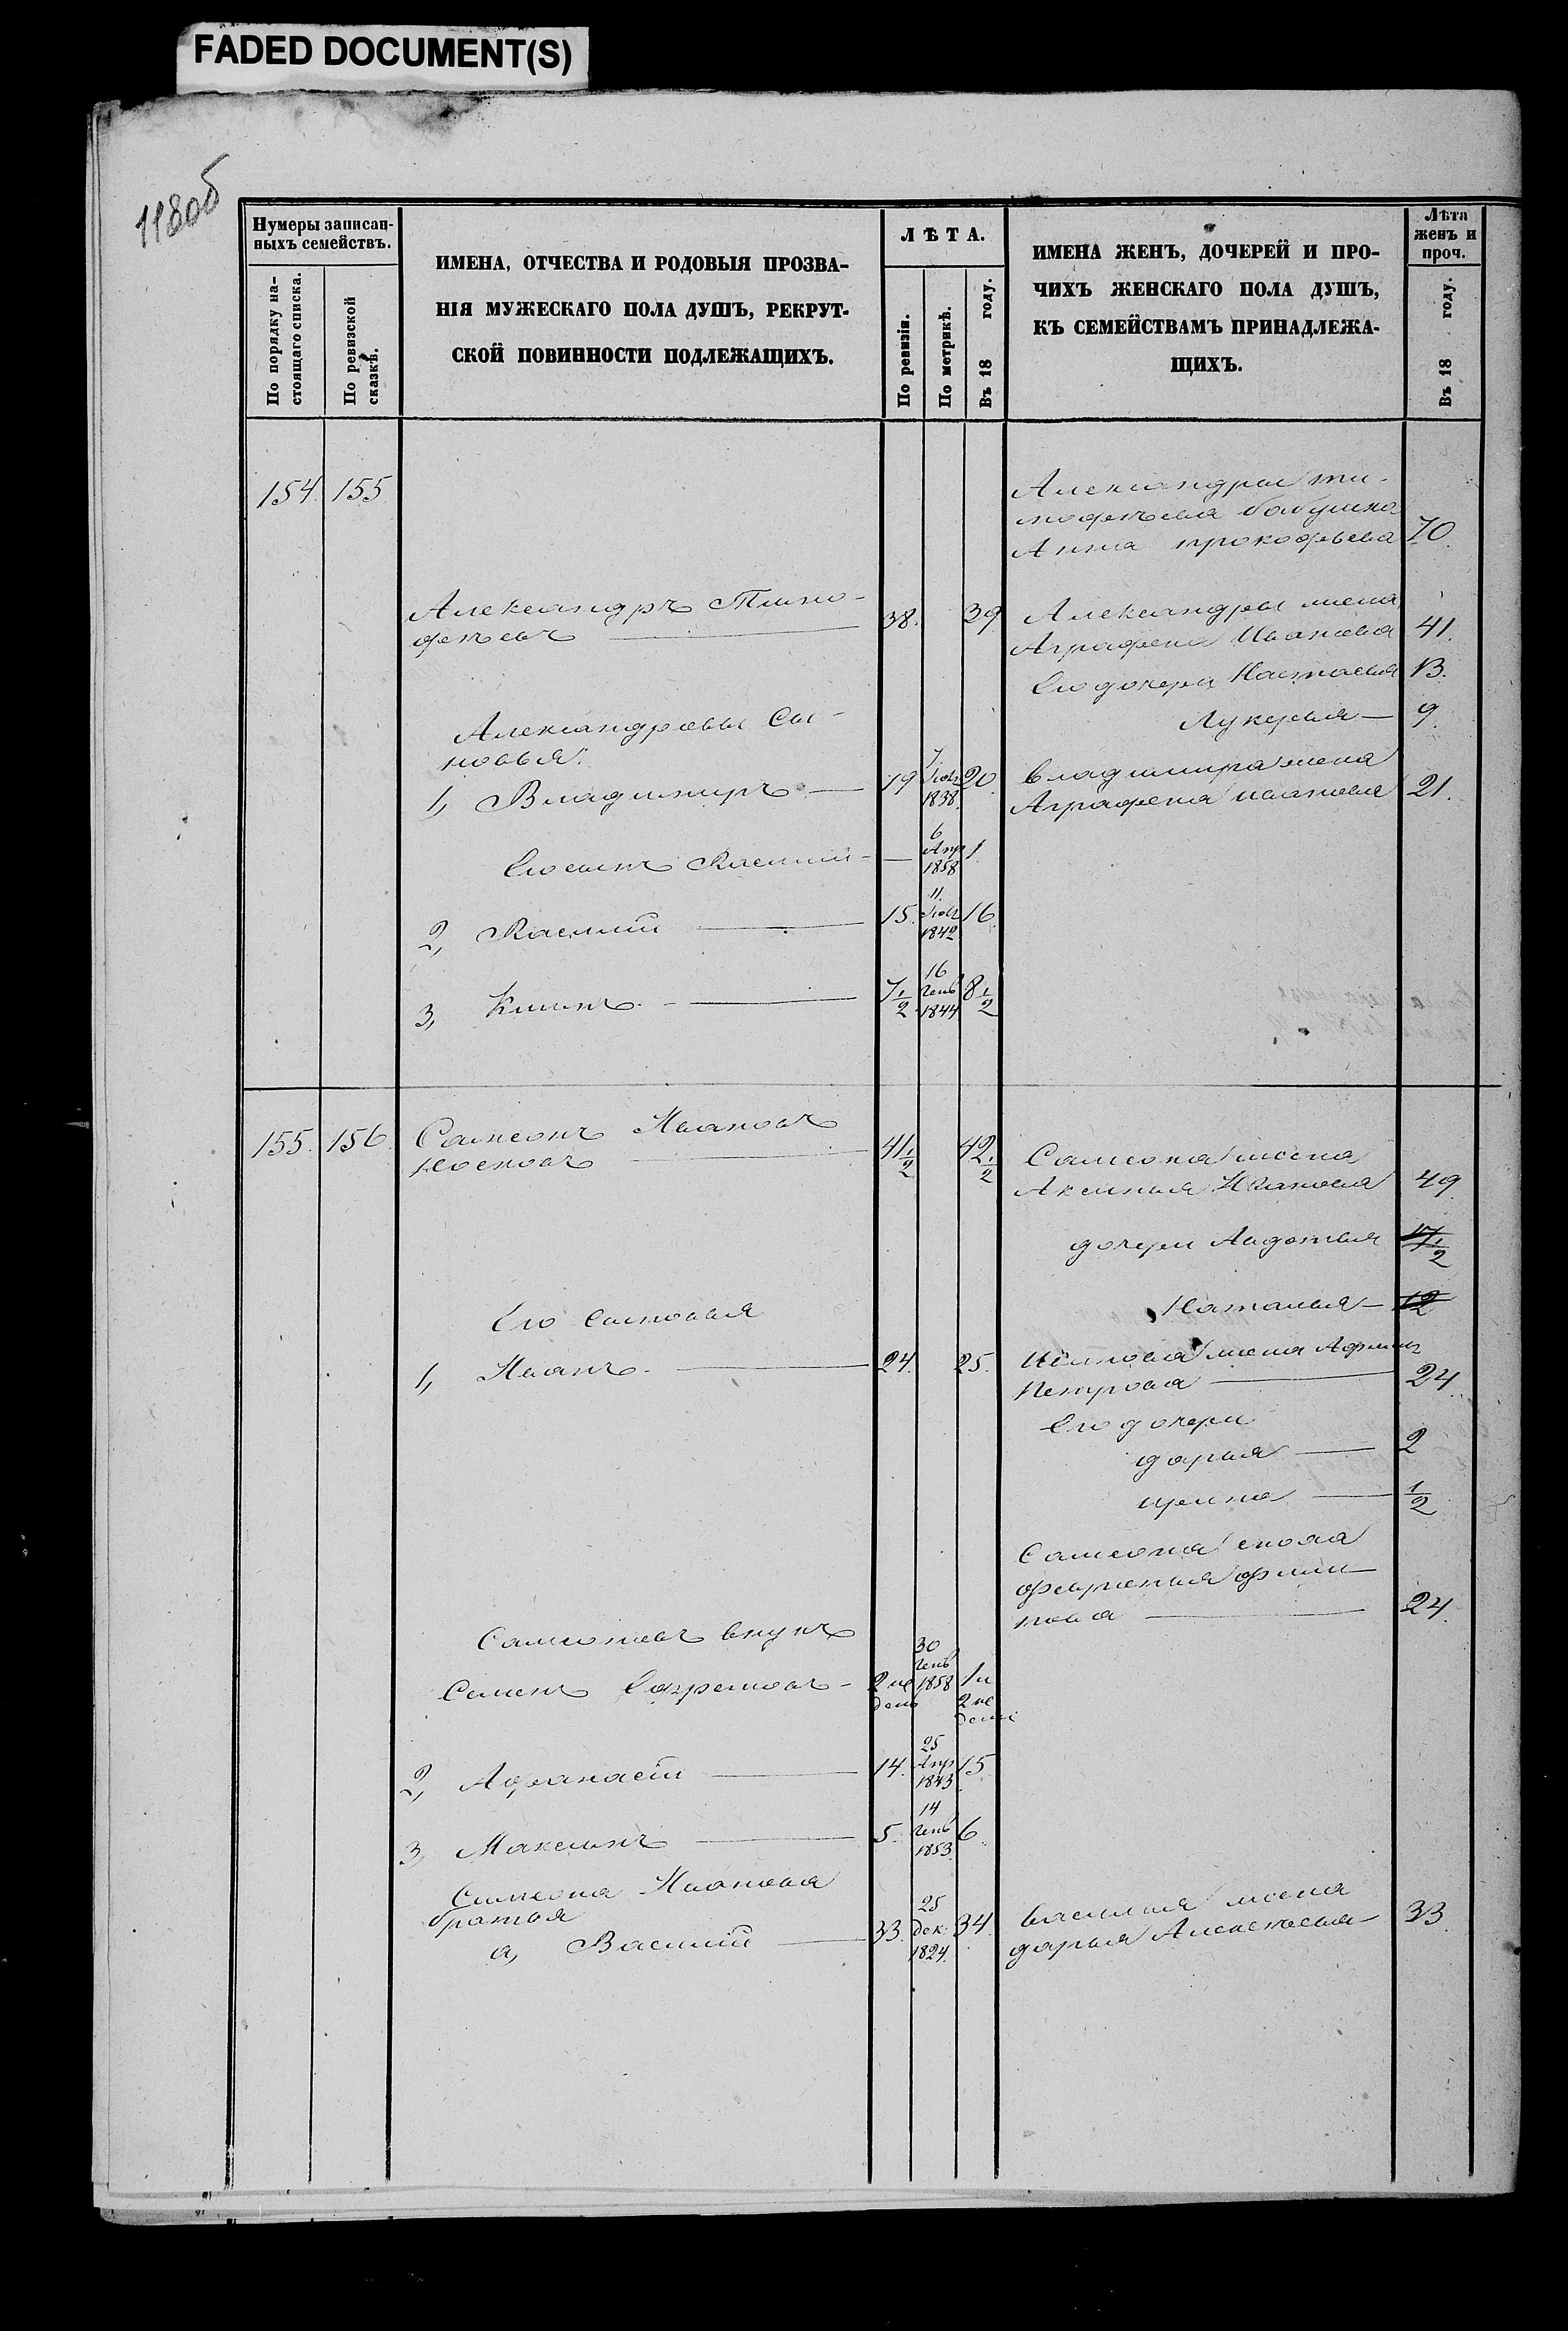 FADED DOCUMENT(S)
118об
Нумеры записан-
ныхъ семействъ.
По порядку на-
стоящаго списка.
По ревизской
сказкѣ.
ИМЕНА, ОТЧЕСТВА И РОДОВЫЯ ПРОЗВА-
НІЯ МУЖЕСКАГО ПОЛА ДУШЪ, РЕКРУТ-
СКОЙ ПОВИННОСТИ ПОДЛЕЖАЩИХЪ.
ЛѢТА.
По ревизіи.
По метрикѣ.
Въ 18 году.
ИМЕНА ЖЕНЪ, ДОЧЕРЕЙ И ПРО-
ЧИХЪ ЖЕНСКАГО ПОЛА ДУШЪ,
КЪ СЕМЕЙСТВАМЪ ПРИНАДЛЕЖА-
ЩИХЪ.
Лѣта
женъ и
проч.
Въ 18 году.
154. 155
Александра ти-
мофѣева бабушка
Анна прокофьева 70.
Александръ Тимо-
фѣевъ 38. 39
Александра жена
Аграфена Иванова 41.
Его дочери Настасья 13.
Лукерья 9.
Александровы сы-
новья:
1, Владимиръ 19 7 Июля 1838. 20
Владимира жена
Аграфена иванова 21.
Его сынъ Василий — 6 Апр 1858 1
2, Василий 15. 11. Июля 1842 16
3, 7 1/2 16 Генв 1844 8 1/2
155. 156. Самсонъ Ивановъ
41 1/2 42 1/2
Самсона жена
Аксинья Иванова 49
дочери Авдотья 17 1/2
Наталья 12
Его сыновья
1, Иванъ 24. 25.
жена
Петрова 24.
Его дочери
дарья 2
ирина 1/2
Самсона сноха
филип-
пова 24.
Самсоновъ внукъ
Семенъ Ефремовъ 2 не дели 30 Генв 1858 1 и 2 не дели
2, Афанасій 14. 25 Апр 1843 15
3, Максимъ 5. 14 Генв 1853 6
Самсона Иванова
братья
а, Василий 33. 25 Дек. 1824. 34.
василия жена
дарья Алексѣева 33.